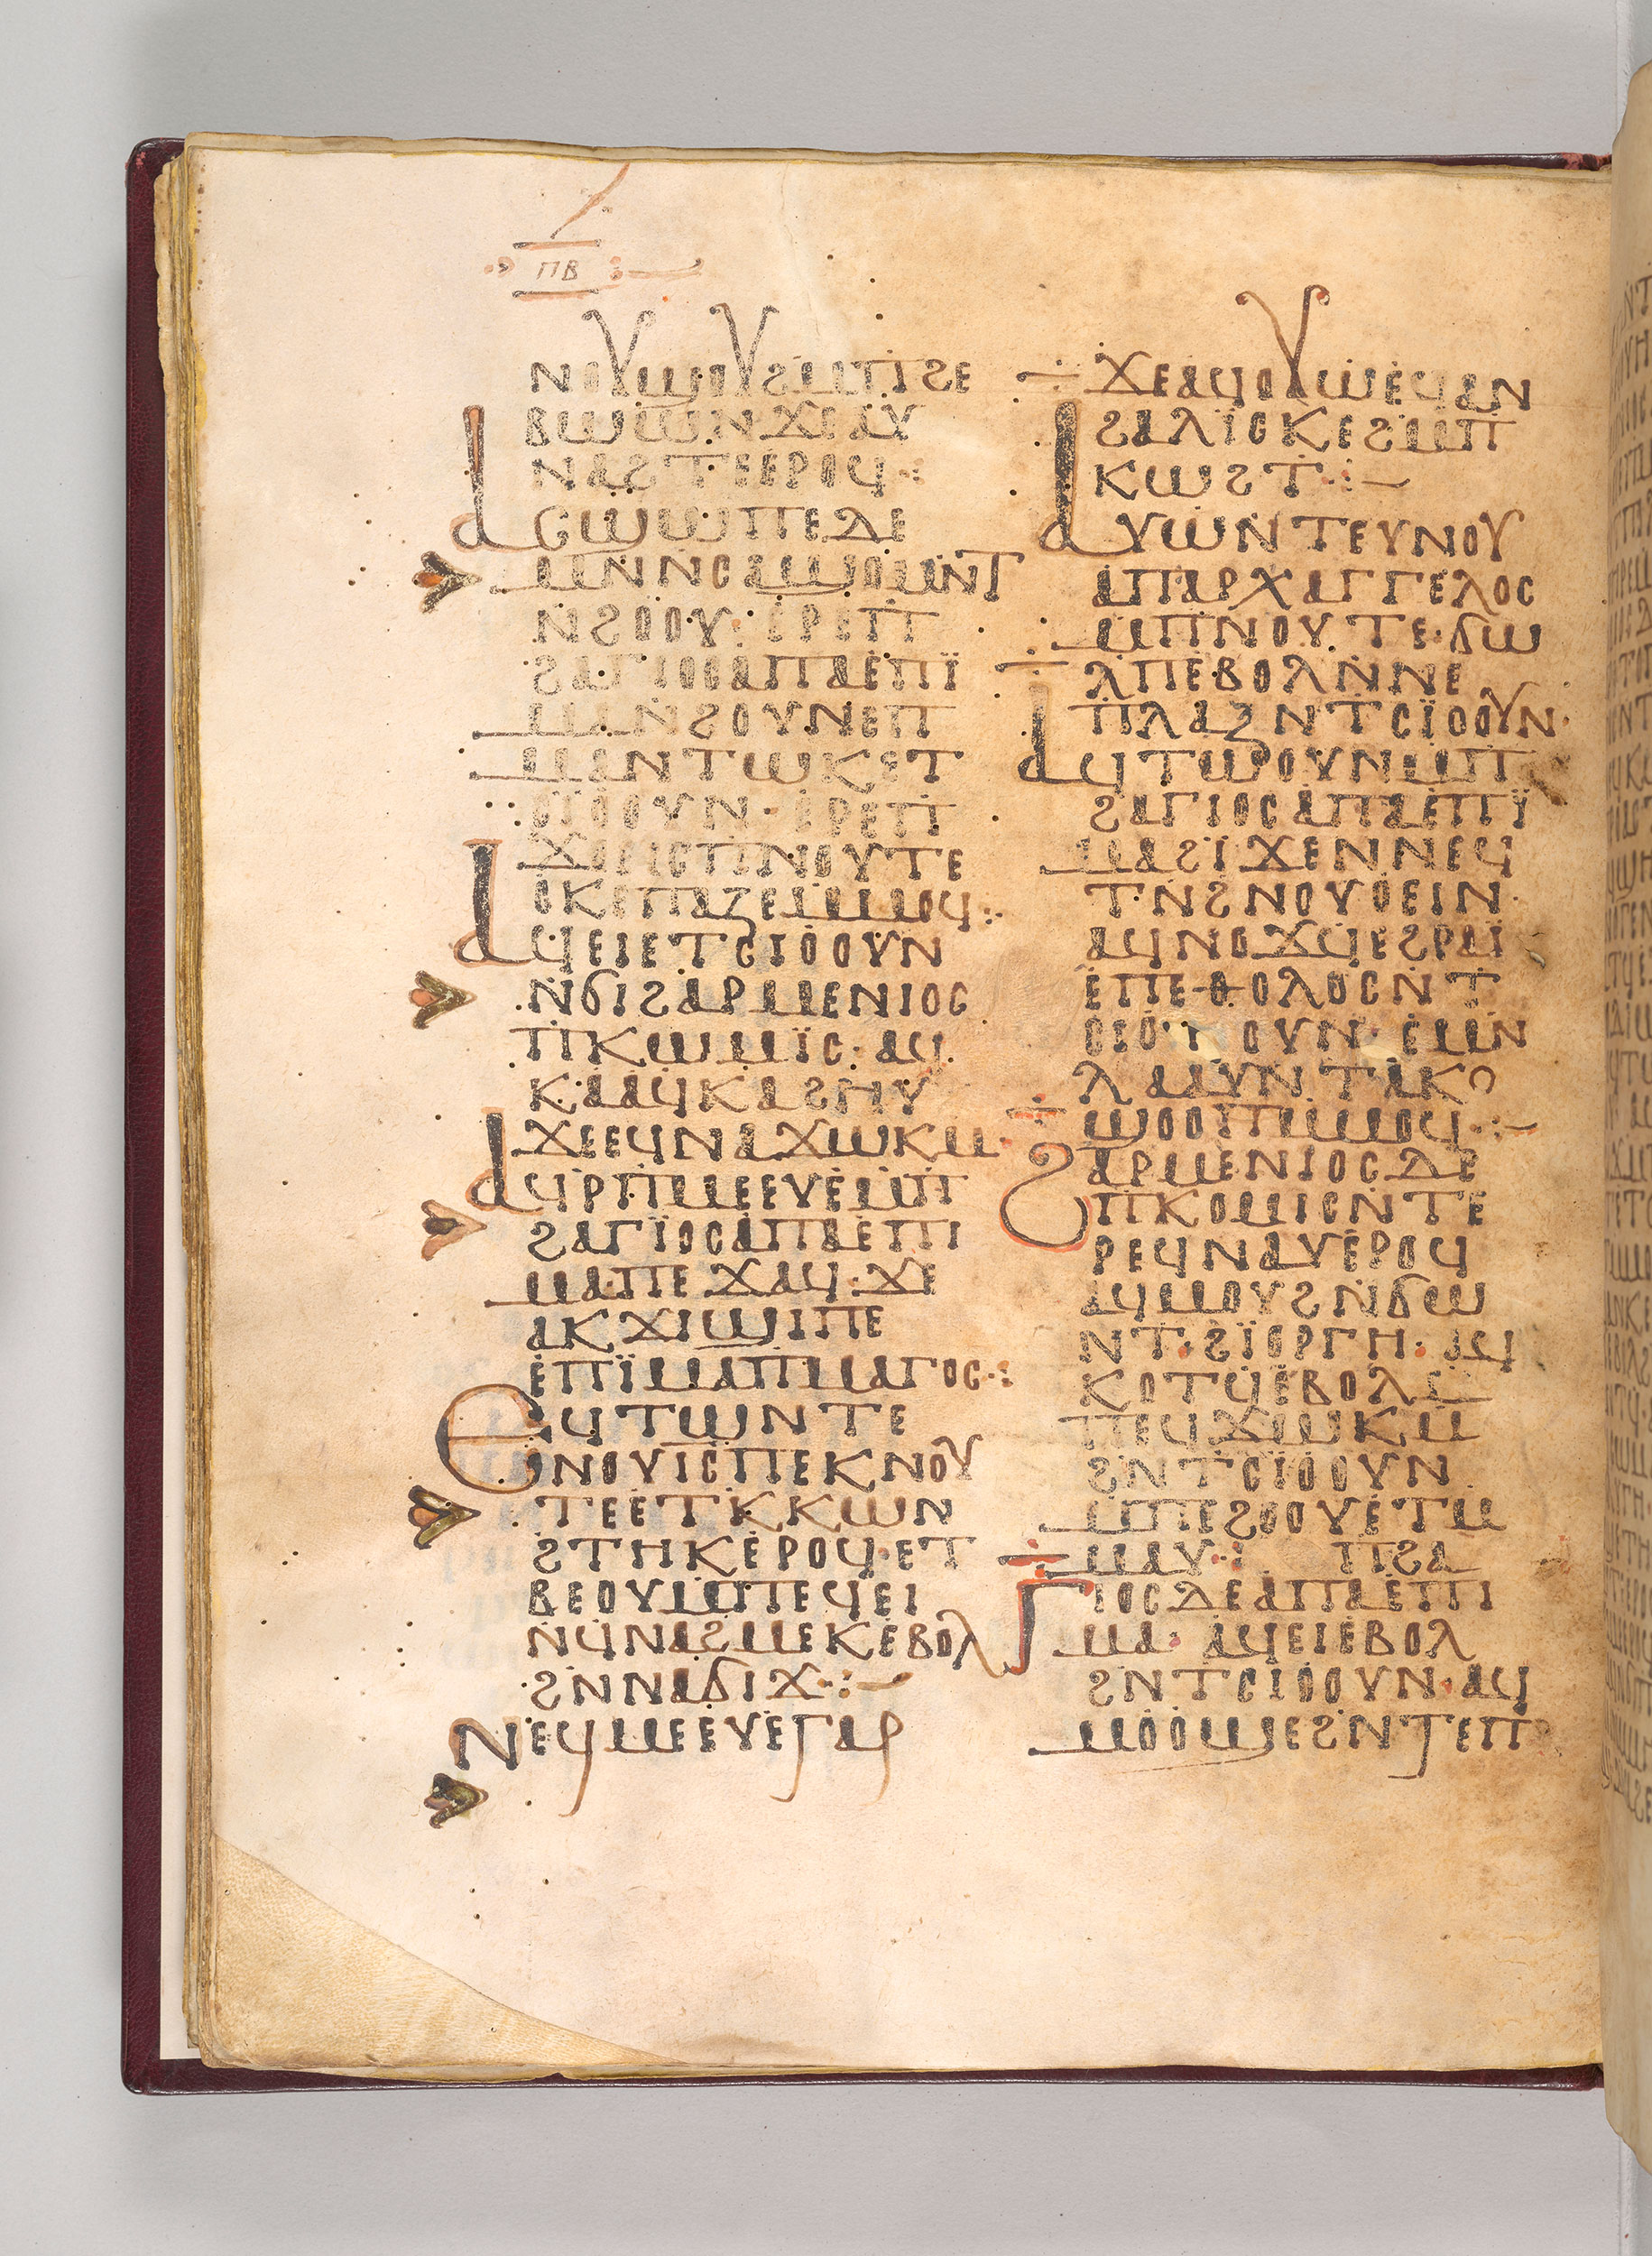 ⲡⲃ
ⲛⲟⲩϣⲟⲩϩⲙⲡϩⲉ
ⲃⲱⲱⲛϫⲉⲁⲩ
ⲛⲁϩⲧⲉⲉⲣⲟϥ
ⲁⲥϣⲱⲡⲉⲇⲉ
ⲙⲛⲛⲥⲁϣⲟⲙⲛⲧ
ⲛϩⲟⲟⲩ· ⲉⲣⲉⲡ
ϩⲁⲅⲓⲟⲥⲁⲡⲁⲉⲡⲓ
ⲙⲁⲛϩⲟⲩⲛⲉⲡ
ⲙⲁⲛⲧⲱⲕⲉⲧ
ⲥⲓⲟⲟⲩⲛ· ⲉⲣⲉⲡ
ϫⲟⲉⲓⲥⲡⲛⲟⲩⲧⲉ
ⲥⲕⲉⲡⲁⲍⲉⲙⲙⲟϥ
ⲁϥⲉⲓⲉⲧⲥⲓⲟⲟⲩⲛ
ⲛϭⲓϩⲁⲣⲙⲉⲛⲓⲟⲥ
ⲡⲕⲱⲙⲓⲥ· ⲁϥ
ⲕⲁⲁϥⲕⲁϩⲏⲩ
ϫⲉⲉϥⲛⲁϫⲱⲕⲙ
ⲁϥⲣⲡⲙⲉⲉⲩⲉⲙⲡ
ϩⲁⲅⲓⲟⲥⲁⲡⲁⲉⲡⲓ
ⲙⲁ·ⲡⲉϫⲁϥ·ϫⲉ
ⲁⲕϫⲓϣⲓⲡⲉ
ⲉⲡⲓⲙⲁⲡⲙⲁⲅⲟⲥ
ⲉϥⲧⲱⲛⲧⲉ
ⲛⲟⲩⲓⲥⲡⲉⲕⲛⲟⲩ
ⲧⲉⲉⲧⲕⲕⲱⲛ
ϩⲧⲏⲕⲉⲣⲟϥ·ⲉⲧ
ⲃⲉⲟⲩⲙⲡⲉϥⲉⲓ
ⲛϥⲛⲁϩⲙⲉⲕⲉⲃⲟⲗ
ϩⲛⲛⲁϭⲓϫ
ⲛⲉϥⲙⲉⲉⲩⲉⲅⲁⲣ
ϫⲉⲁϥⲟⲩⲱⲉϥⲁⲛ
ϩⲁⲗⲓⲥⲕⲉϩⲙⲡ
ⲕⲱϩⲧ
ⲁⲩⲱⲛⲧⲉⲩⲛⲟⲩ
ⲁⲡⲁⲣⲭⲁⲅⲅⲉⲗⲟⲥ
ⲙⲡⲛⲟⲩⲧⲉ·ϭⲱ
ⲗⲡⲉⲃⲟⲗⲛⲛⲉ
ⲡⲗⲁⲍⲛⲧⲥⲓⲟⲟⲩⲛ
ⲁϥⲧⲱⲟⲩⲛⲙⲡ
ϩⲁⲅⲓⲟⲥⲁⲡⲁⲉⲡⲓ
ⲙⲁϩⲓϫⲉⲛⲛⲉϥ
ⲧ·ⲛϩⲛⲟⲩⲟⲉⲓⲛ
ⲁϥⲛⲟϫϥⲉϩⲣⲁⲓ
ⲉⲡⲉⲑⲟⲗⲟⲥⲛⲧ
ⲥⲓⲟⲟⲩⲛ· ⲉⲙⲛ
ⲗⲁⲁⲩⲛⲧⲁⲕⲟ
ϣⲟⲟⲡⲙⲙⲟϥ
ϩⲁⲣⲙⲉⲛⲓⲟⲥⲇⲉ
ⲡⲕⲟⲙⲓⲥⲛⲧⲉ
ⲣⲉϥⲛⲁⲩⲉⲣⲟϥ
ⲁϥⲙⲟⲩϩⲛϭⲱ
ⲛⲧ·ϩⲓⲟⲣⲅⲏ· ⲁϥ
ⲕⲟⲧϥⲉⲃⲟⲗϩ
ⲡⲉϥϫⲱⲕⲙ
ϩⲛⲧⲥⲓⲟⲟⲩⲛ
ⲙⲡⲉϩⲟⲟⲩⲉⲧⲙ
ⲙⲁⲩ· ⲡϩⲁ
ⲅⲓⲟⲥⲇⲉⲁⲡⲁⲉⲡⲓ
ⲙⲁ· ⲁϥⲉⲓⲉⲃⲟⲗ
ϩⲛⲧⲥⲓⲟⲟⲩⲛ·ⲁϥ
ⲙⲟⲟϣⲉϩⲛⲧⲉⲡ